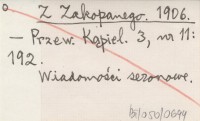 Z Zakopanego. 1906.
— Przew. Kąpiel. 3, nr 11:
192.
Wiadomości sezonowe.